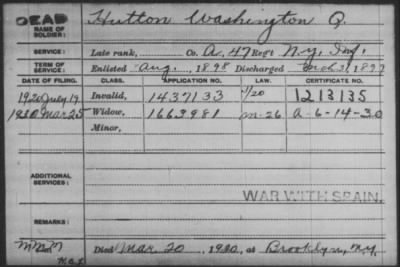 DEAD
NAME OF SOLDIER: Hutton Washington Q.
SERVICE: Late rank, Co. A, 47 Reg't N.Y. Inf.
TERM OF SERVICE: Enlisted Aug., 1898 Discharged Mch 31, 1899
DATE OF FILING. CLASS. APPLICATION NO. LAW. CERTIFICATE NO.
1920 July 19 Invalid, 1437133 1213135
1930 Mar 25 Widow, 1663981 M-26 A-6-14-30
Minor,
ADDITIONAL SERVICES:
WAR WITH SPAIN.
REMARKS:
Died Mar. 20, 1930, at Brooklyn, N.Y.